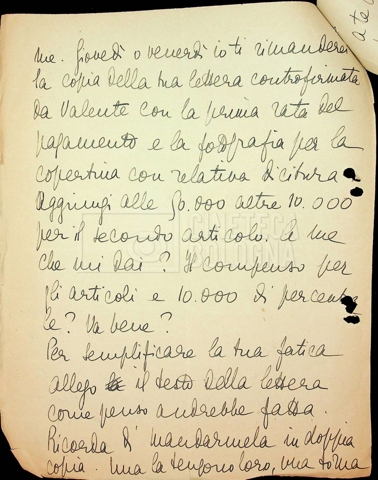 a te c
me. Giovedì o venerdì io ti rimanderei
la copia della tua lettera controfirmata
da Valente con la prima rata del
pagamento e la fotografia per la
copertina con relativa dicitura.
Aggiungi alle 50.000 altre 10.000
per il secondo articolo. A me
che mi dai? Il compenso per
gli articoli e 10.000 di percentua
le? Va bene?
Per semplificare la tua fatica
allego il testo della lettera
come penso andrebbe fatta.
Ricorda di mandarmela in doppia
copia. Una la tengono loro, una torna
CINETECA
BOLOGNA